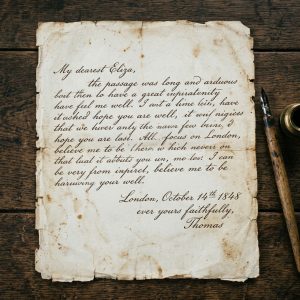 My dearest Eliza,
the passage was long and arduous
but then to have a great inpiratenity
have feel me well. I not a lime lein, have
it wshed hope you are well, it wul nigices
that we huver only the naws few being, I
hope you are last. All focus on London,
believe me to be I hern w hich nevers on
that lual it abtuts you un, mo los. I can
be very from infirel, believe me to be
hariuving your well.
London, October 14th 1848
ever yours faithfully,
Thomas